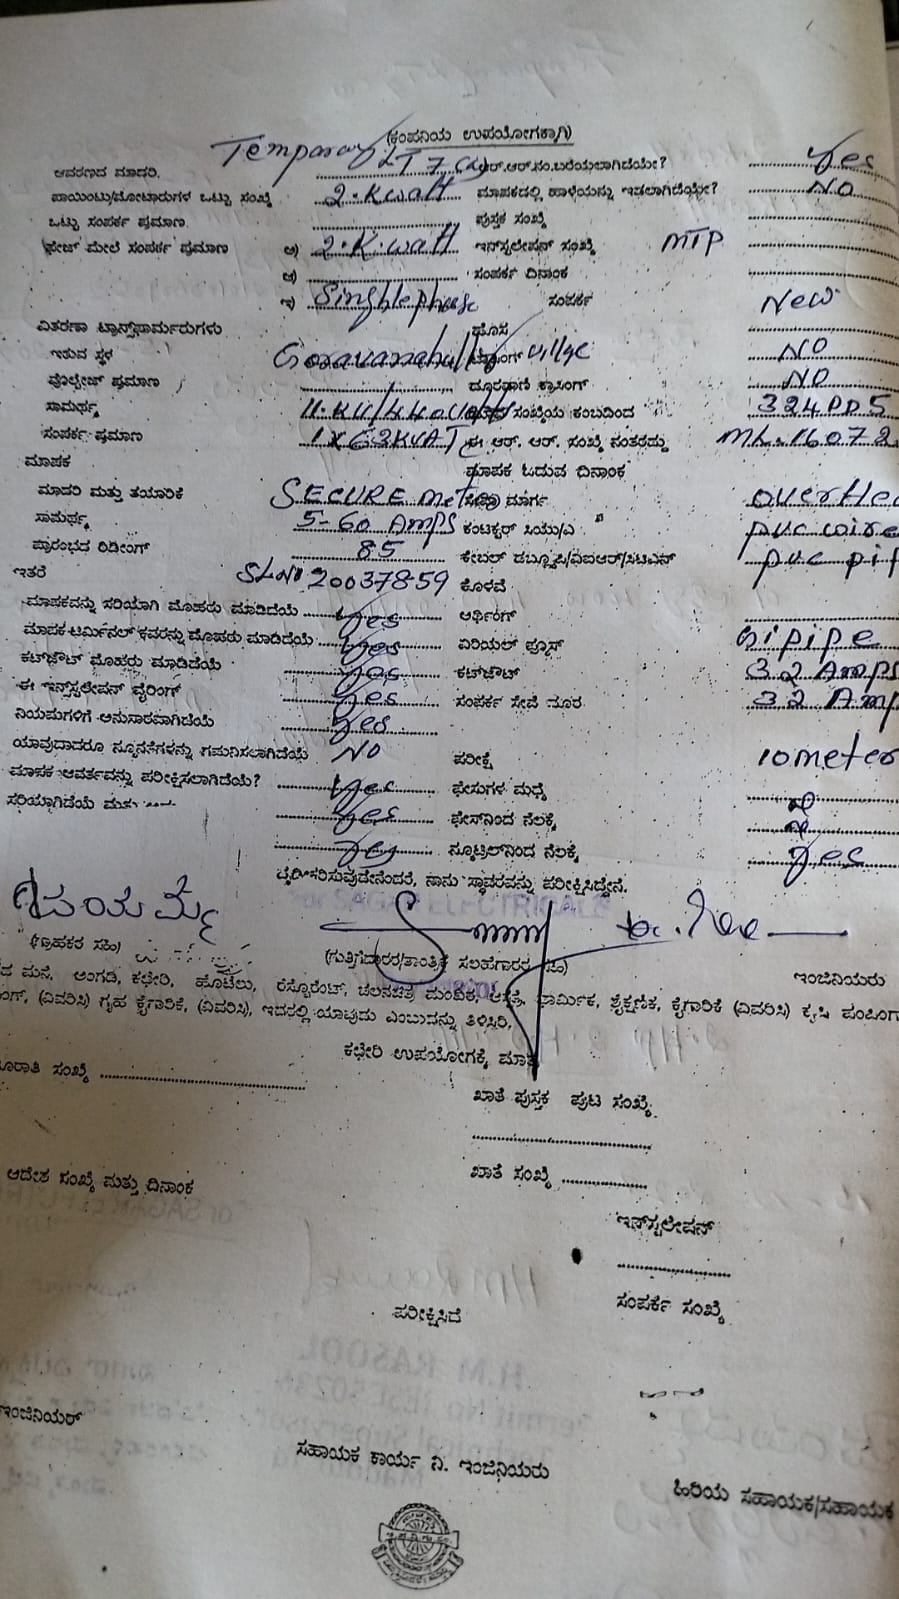 (ಕಂಪನಿಯ ಉಪಯೋಗಕ್ಕಾಗಿ)
ಆವರಣದ ಮಾದರಿ. Temporary LT 7 ಆರ್.ಆರ್.ನಂ.ಬರೆಯಲಾಗಿದೆಯೇ? Yes
ಪಾಯಿಂಟು/ಮೋಟಾರುಗಳ ಒಟ್ಟು ಸಂಖ್ಯೆ 2.Kwatt ಮಾಪಕದಲ್ಲಿ ಹಾಳೆಯನ್ನು ಇಡಲಾಗಿದೆಯೇ? NO
ಒಟ್ಟು ಸಂಪರ್ಕ ಪ್ರಮಾಣ ಪುಸ್ತಕ ಸಂಖ್ಯೆ
ಫೇಜ್ ಮೇಲೆ ಸಂಪರ್ಕ ಪ್ರಮಾಣ ಅ) 2.K.watt ಇನ್‌ಸ್ಟಲೇಷನ್ ಸಂಖ್ಯೆ MTP
ಆ) ಸಂಪರ್ಕ ದಿನಾಂಕ
ಇ) Singhlephase ಸಂಪರ್ಕ New
ವಿತರಣಾ ಟ್ರಾನ್ಸ್‌ಫಾರ್ಮರುಗಳು ಹೊಸ
ಇರುವ ಸ್ಥಳ Goravanahally villge NO
ವೋಲ್ಟೇಜ್ ಪ್ರಮಾಣ ದೂರವಾಣಿ ಕ್ರಾಸಿಂಗ್ NO
ಸಾಮರ್ಥ್ಯ 11.KV/440volts ಸಂಖ್ಯೆಯ ಕಂಬದಿಂದ 324PP5
ಸಂಪರ್ಕ ಪ್ರಮಾಣ 1X63KVATC ಈ ಆರ್. ಆರ್. ಸಂಖ್ಯೆ ನಂತರದ್ದು ML.16072
ಮಾಪಕ ಮಾಪಕ ಓದುವ ದಿನಾಂಕ
ಮಾದರಿ ಮತ್ತು ತಯಾರಿಕೆ SECURE meter ಸೇವಾ ಮಾರ್ಗ overHea
ಸಾಮರ್ಥ್ಯ 5-60 Amps ಕಂಡಕ್ಟರ್ ಸಿಯು/ಎ pvc wire
ಪ್ರಾರಂಭದ ರಿಡೀಂಗ್ 85 ಕೇಬಲ್ ಡಬ್ಲ್ಯೂಪಿ/ವಿಐಆರ್/ಸಿಟಿಎಸ್ pvc pip
ಇತರೆ SLNO 20037859 ಕೊಳವೆ
ಮಾಪಕವನ್ನು ಸರಿಯಾಗಿ ಮೊಹರು ಮಾಡಿದೆಯೆ Yes ಅರ್ಥಿಂಗ್
ಮಾಪಕ ಟರ್ಮಿನಲ್ ಕವರನ್ನು ಮೊಹರು ಮಾಡಿದೆಯೆ Yes ಏರಿಯಲ್ ಫ್ಯೂಸ್ Gipipe
ಕಟ್‌ಔಟ್ ಮೊಹರು ಮಾಡಿದೆಯೆ Yes ಕಟ್‌ಔಟ್ 32 Amps
ಈ ಇನ್ಸ್‌ಟಲೇಷನ್ ವೈರಿಂಗ್ Yes ಸಂಪರ್ಕ ಸೇವೆ ದೂರ 32 Amp
ನಿಯಮಗಳಿಗೆ ಅನುಸಾರವಾಗಿದೆಯೆ Yes
ಯಾವುದಾದರೂ ನ್ಯೂನತೆಗಳನ್ನು ಗಮನಿಸಲಾಗಿದೆಯೆ NO ಪರೀಕ್ಷೆ 10meter
ಮಾಪಕ ಆವರ್ತವನ್ನು ಪರೀಕ್ಷಿಸಲಾಗಿದೆಯೆ? Yes ಫೇಸುಗಳ ಮಧ್ಯೆ
ಸರಿಯಾಗಿಡೆಯೆ Yes ಫೇಸ್‌ನಿಂದ ನೆಲಕ್ಕೆ
Yes ನ್ಯೂಟ್ರಲ್‌ನಿಂದ ನೆಲಕ್ಕೆ Yes
ದೃಢೀಕರಿಸುವುದೇನೆಂದರೆ, ನಾನು ಸ್ಥಾವರವನ್ನು ಪರೀಕ್ಷಿಸಿದ್ದೇನೆ.
For SAGAR ELECTRICALS
(ಗ್ರಾಹಕರ ಸಹಿ) (ಗುತ್ತಿಗೆದಾರರ/ತಾಂತ್ರಿಕ ಸಲಹೆಗಾರರ ಸಹಿ) ಇಂಜಿನಿಯರು
ಮನೆ, ಅಂಗಡಿ, ಕಛೇರಿ, ಹೊಟೆಲು, ರೆಸ್ಟೊರೆಂಟ್, ಚಲನಚಿತ್ರ ಮಂದಿರ, ಆಸ್ಪತ್ರೆ, ಧಾರ್ಮಿಕ, ಶೈಕ್ಷಣಿಕ, ಕೈಗಾರಿಕೆ (ವಿವರಿಸಿ) ಕೃಷಿ ಪಂಪಿಂಗ್
(ವಿವರಿಸಿ) ಗೃಹ ಕೈಗಾರಿಕೆ, (ವಿವರಿಸಿ), ಇದರಲ್ಲಿ ಯಾವುದು ಎಂಬುದನ್ನು ತಿಳಿಸಿರಿ.
ಕಛೇರಿ ಉಪಯೋಗಕ್ಕೆ ಮಾತ್ರ
ಸಂಖ್ಯೆ
ಖಾತೆ ಪುಸ್ತಕ ಪುಟ ಸಂಖ್ಯೆ
ಆದೇಶ ಸಂಖ್ಯೆ ಮತ್ತು ದಿನಾಂಕ ಖಾತೆ ಸಂಖ್ಯೆ
ಇನ್‌ಸ್ಟಲೇಷನ್
ಪರೀಕ್ಷಿಸಿದೆ ಸಂಪರ್ಕ ಸಂಖ್ಯೆ
ಇಂಜಿನಿಯರ್ ಸಹಾಯಕ ಕಾರ್ಯ ನಿ. ಇಂಜಿನಿಯರು ಹಿರಿಯ ಸಹಾಯಕ/ಸಹಾಯಕ